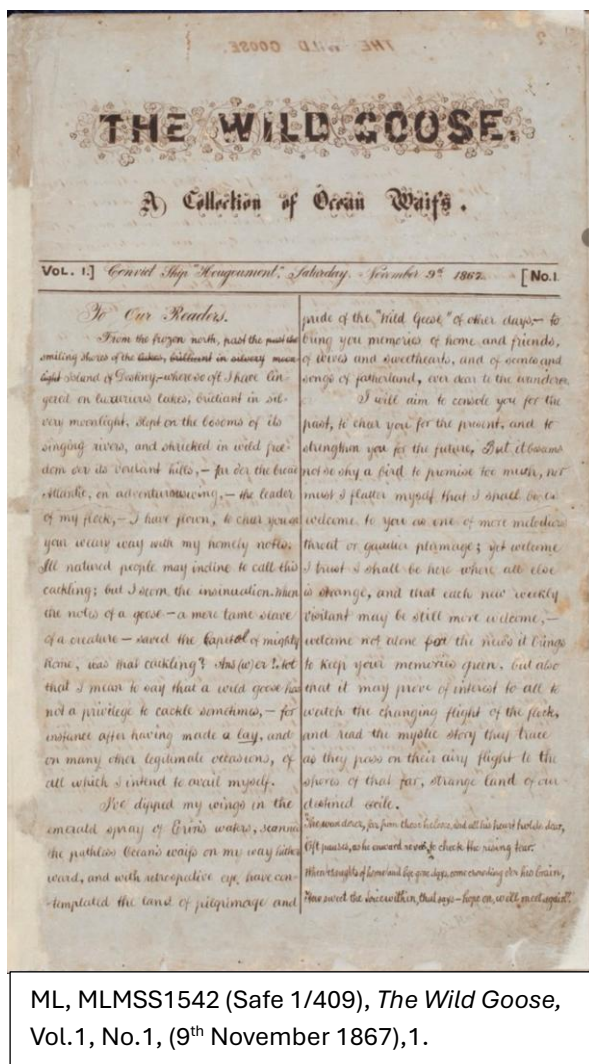 THE WILD GOOSE.
A Collection of Ocean Waifs.
VOL. 1.] Convict Ship "Hougoumont," Saturday, November 9th 1867 [No.1
To Our Readers.
From the frozen north, past the past the
smiling shores of the lakes, brilliant in silvery moon-
light Island of Destiny,—where so oft I have lin-
gered on luxurious lakes, brilliant in sil-
very moonlight, slept on the bosoms of its
singing rivers, and shrieked in wild free-
dom o'er its verdant hills,— far o'er the broad
Atlantic, on adventurous wing,— the leader
of my flock,— I have flown, to cheer you on
your weary way with my homely notes.
Ill natured people may incline to call this
cackling; but I scorn the insinuation. When
the notes of a goose — a mere tame slave
of a creature — saved the Capitol of mighty
Rome, was that cackling? Ans(w)er! Not
that I mean to say that a wild goose has
not a privilege to cackle sometimes,— for
instance after having made a lay, and
on many other legitimate occasions, of
all which I intend to avail myself.
I've dipped my wings in the
emerald spray of Erin's waters, scanned
the pathless Ocean's waifs on my way hither
ward, and with retrospective eye, have con-
templated the land of pilgrimage and
pride of the "Wild Geese" of other days,— to
bring you memories of home and friends,
of wives and sweethearts, and of scenes and
songs of fatherland, ever dear to the wanderer.
I will aim to console you for the
past, to cheer you for the present, and to
strengthen you for the future. But it becomes
not so shy a bird to promise too much, nor
must I flatter myself that I shall be as
welcome to you as one of more melodious
throat or gaudier plumage; yet welcome
I trust I shall be here where all else
is strange, and that each new weekly
visitant may be still more welcome,—
welcome not alone for the news it brings
to keep your memories green, but also
that it may prove of interest to all to
watch the changing flight of the flock,
and read the mystic story they trace
as they pass on their airy flight to the
shores of that far, strange land of our
destined exile.
far from those he loves, and all his heart holds dear,
Oft pauses, as he onward to check the rising tear.
When thoughts of home and bye gone days, come crowding o'er his brain,
How sweet the voice within, that says — hope on, we'll meet again!"
ML, MLMSS1542 (Safe 1/409), The Wild Goose,
Vol.1, No.1, (9th November 1867),1.